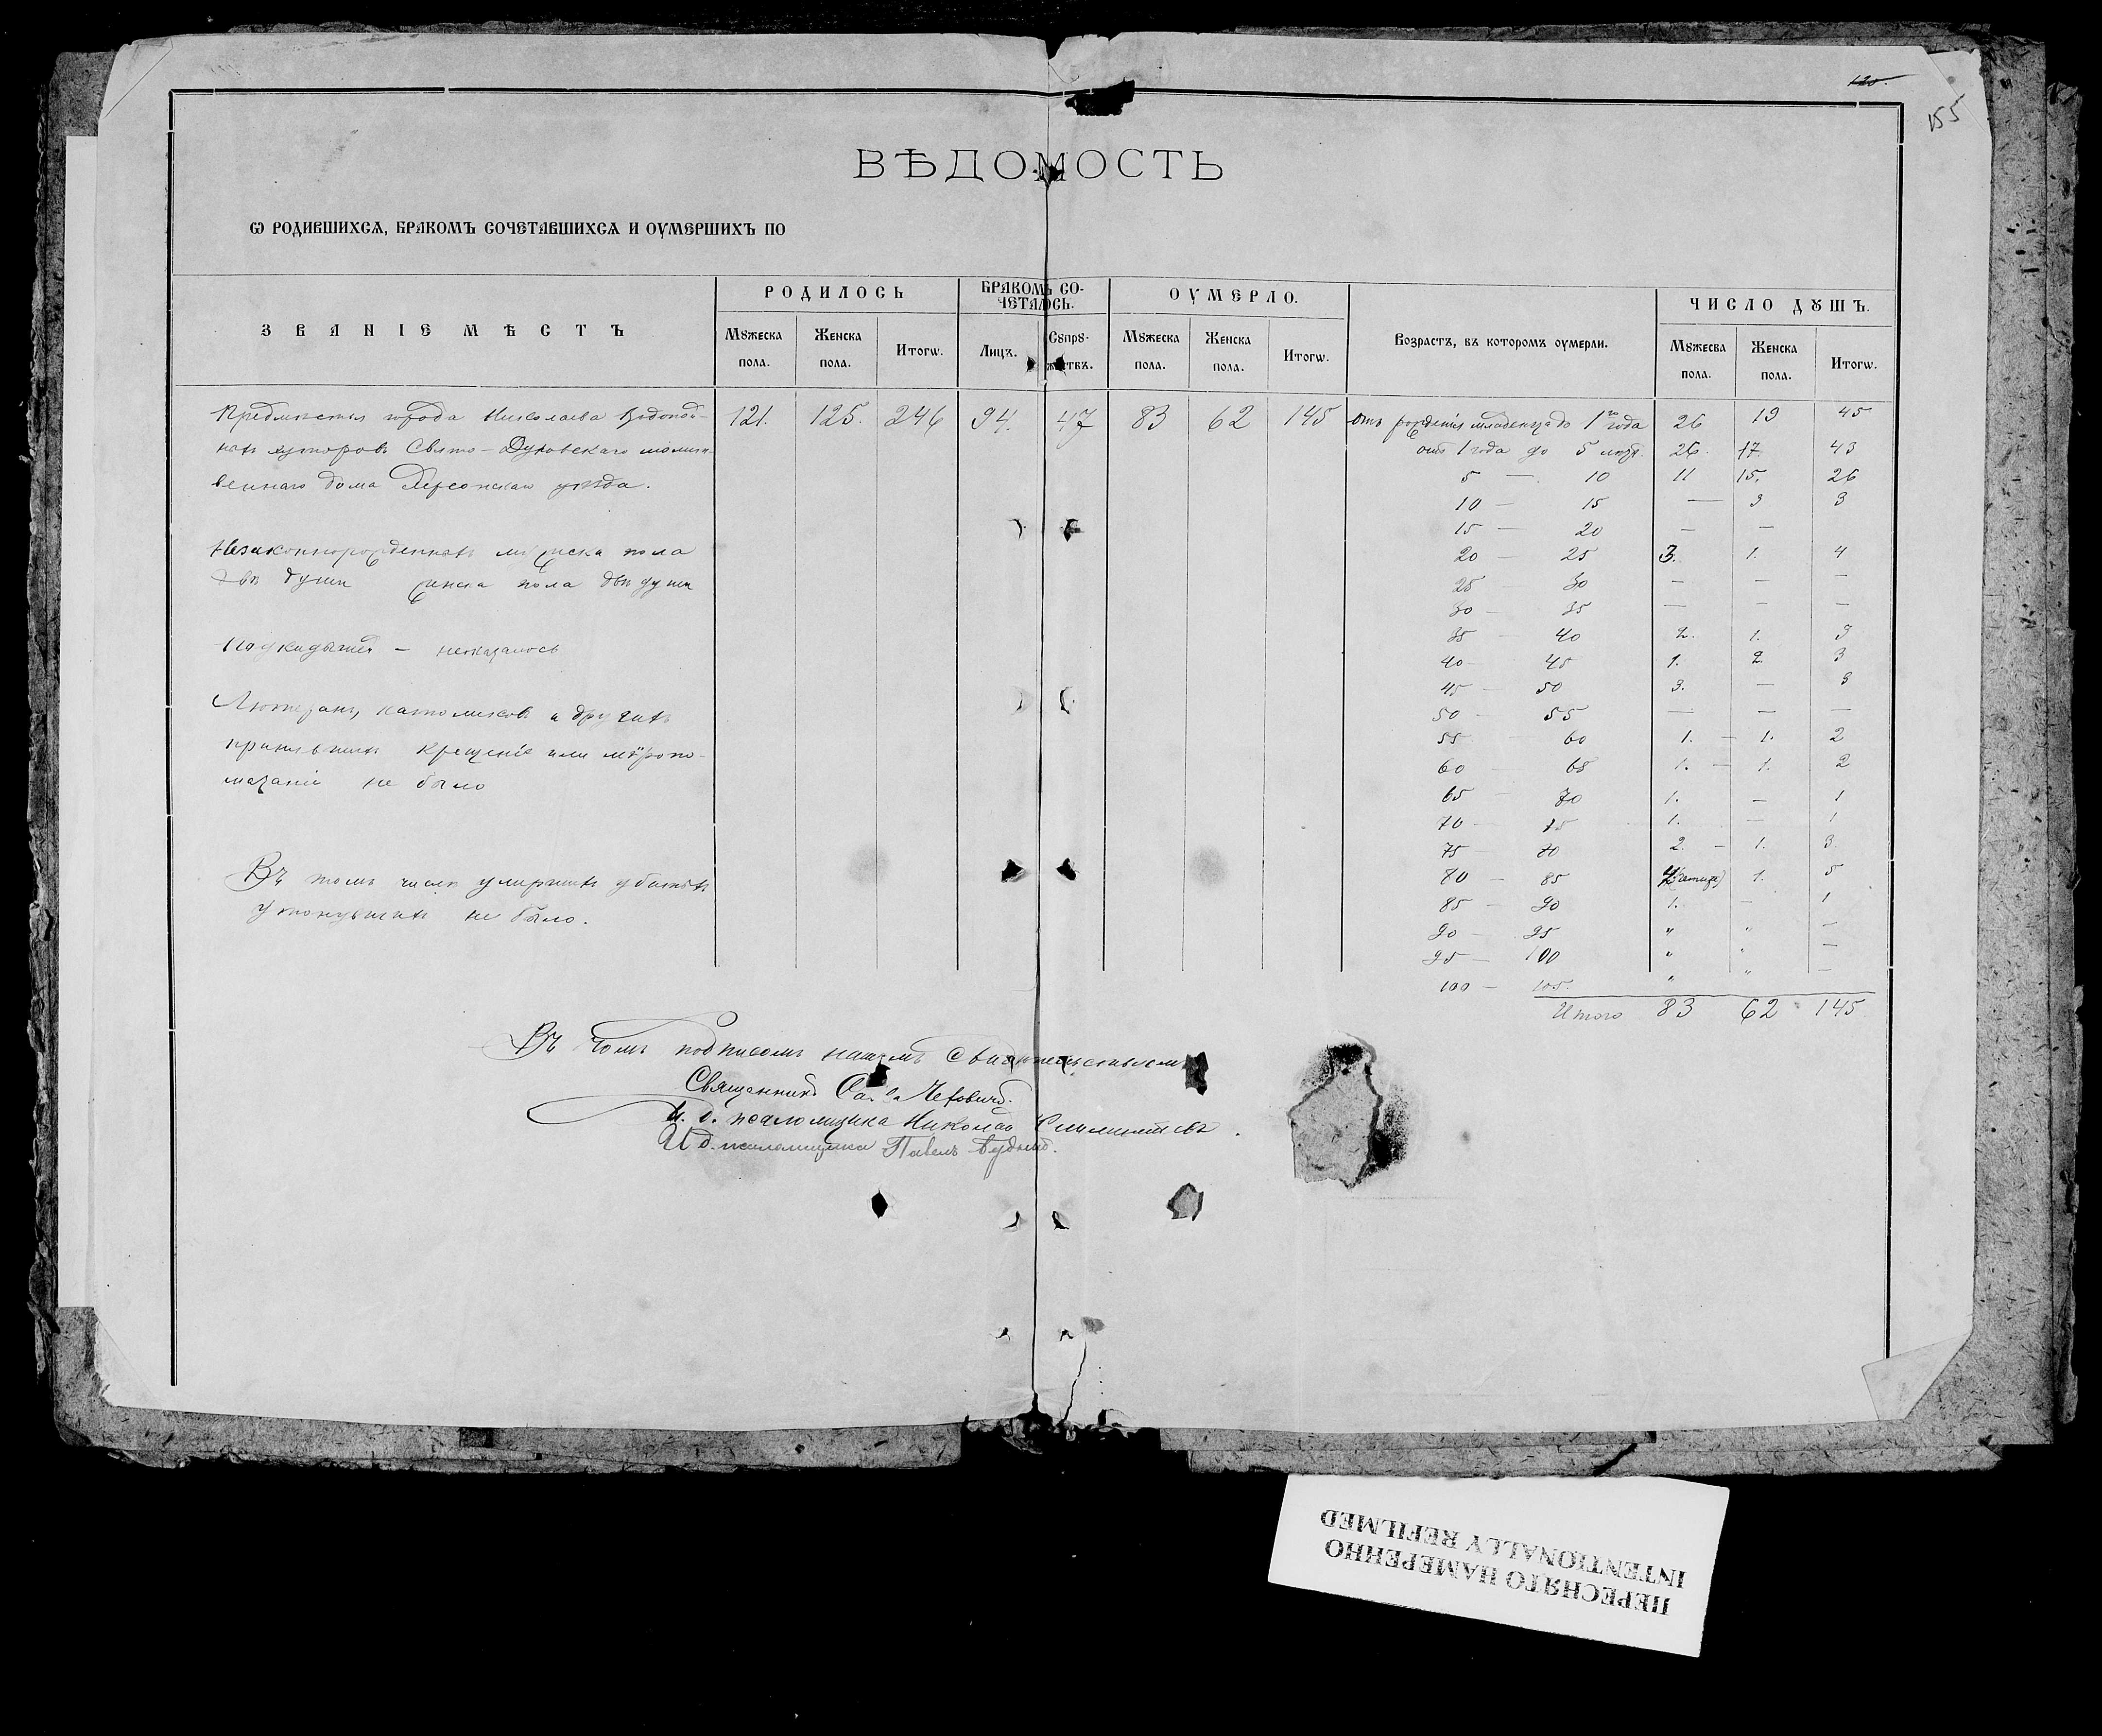 120.
155
ВѢДОМОСТЬ
Ѡ РОДИВШИХСѦ, БРАКОМЪ СОЧЕТАВШИХСѦ И ОУМЕРШИХЪ ПО
ЗВАНІЕ МѢСТЪ
РОДИЛОСЬ
БРАКОМЪ СО-
ЧЕТАЛОСЬ.
ОУМЕРЛО.
Возрастъ, въ которомъ оумерли.
ЧИСЛО ДꙊШЪ.
Мꙋжеска пола. Женска пола. Итогѡ. Лицъ. Сꙋпрꙋ-жествъ. Мꙋжеска пола. Женска пола. Итогѡ. Мꙋжесва пола. Женска пола. Итогѡ.
Предмѣстья города Николаева Водопой-
нахъ хуторовъ Свято-Духовскаго молит-
веннаго дома Херсонскаго уѣзда.
121. 125. 246 94. 47 83 62 145
Незаконнорожденныхъ мужеска пола
двѣ души женска пола двѣ души
Подкидышей – неоказалось
Лютеранъ, католиковъ и другихъ
принявшихъ крещеніе или мѵропо-
мазаніе не было
Въ томъ числѣ умершихъ убитыхъ
утонувшихъ не было.
отъ рожденія младенца до 1го года 26 19 45
отъ 1 года до 5 лѣтъ. 26. 17. 43
5 — 10 11 15. 26
10 — 15 — 3 3
15 — 20 — —
20 — 25 3. 1. 4
25 — 30 — — —
30 — 35 — — —
35 — 40 2. 1. 3
40 — 45 1. 2 3
45 — 50 3. — 3
50 — 55 — — —
55 — 60 1. — 1. 2
60 — 65 1. — 1. 2
65 — 70 1. — 1
70 — 75 1. — 1
75 — 80 2. — 1. 3.
80 — 85 4 (четыре) 1. 5
85 — 90 1. — 1
90 — 95 " " —
95 — 100 " " —
100 — 105. " " —
Итого 83 62 145
Въ томъ подписомъ нашимъ свидѣтельствуемъ
Священникъ
И. д. псаломщика Николай
И д. псаломщика Павелъ
ПЕРЕСНЯТО НАМЕРЕННО
INTENTIONALLY REFILMED